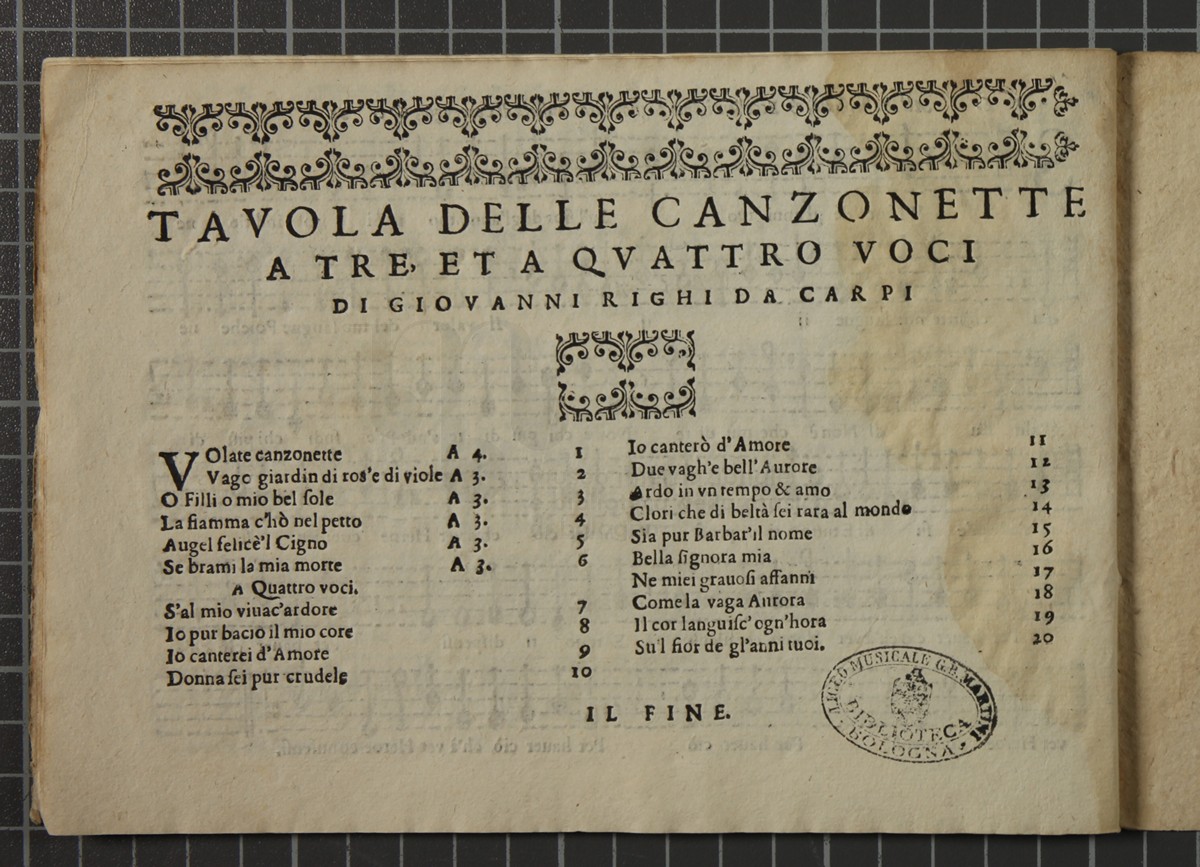 TAVOLA DELLE CANZONETTE
A TRE, ET A QVATTRO VOCI
DI GIOVANNI RIGHI DA CARPI
VOlate canzonette A 4. 1
Vago giardin di ros'e di viole A 3. 2
O Filli o mio bel ſole A 3. 3
La fiamma c'hò nel petto A 3. 4
Augel felicè'l Cigno A 3. 5
Se brami la mia morte A 3. 6
A Quattro voci.
S'al mio viuac'ardore 7
Io pur bacio il mio core 8
Io canterei d'Amore 9
Donna ſei pur crudele 10
Io canterò d'Amore 11
Due vagh'e bell'Aurore 12
Ardo in vn tempo & amo 13
Clori che di beltà ſei rara al mondo 14
Sia pur Barbar'il nome 15
Bella ſignora mia 16
Ne miei grauoſi affanni 17
Come la vaga Aurora 18
Il cor languiſc' ogn'hora 19
Su'l fior de gl'anni tuoi. 20
IL FINE.
LICEO MUSICALE G.B. MARTINI
BIBLIOTECA
BOLOGNA